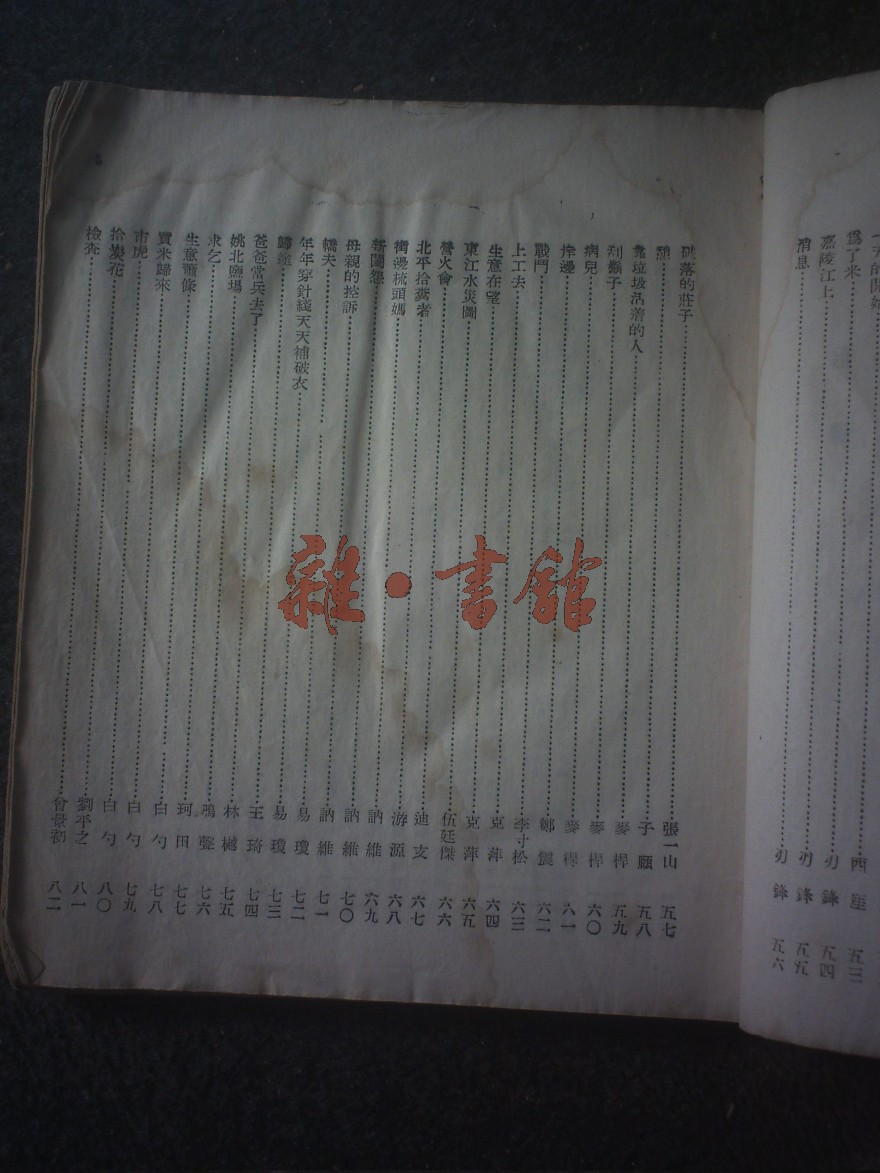 一天的開始 西厓 五三
爲了米 刃鋒 五四
嘉陵江上 刃鋒 五五
消息 刃鋒 五六
破落的莊子 張一山 五七
憩 子願 五八
靠垃圾活着的人 麥桿 五九
刮鬍子 麥桿 六〇
病兒 麥桿 六一
岸邊 鄭震 六二
戰鬥 李寸松 六三
上工去 克萍 六四
生意在望 克萍 六五
東江水災圖 伍廷傑 六六
營火會 迪支 六七
北平拾糞者 游源 六八
街邊梳頭媽 訥維 六九
新閨怨 訥維 七〇
母親的控訴 訥維 七一
轎夫 易瓊 七二
年年穿針綫天天補破衣 易瓊 七三
歸途 王琦 七四
爸爸當兵去了 林樾 七五
姚北鹽場 鳴聲 七六
求乞 珂田 七七
生意蕭條 白勺 七八
買米歸來 白勺 七九
市虎 白勺 八〇
拾煤花 劉平之 八一
檢查 曾景初 八二
雜·書館